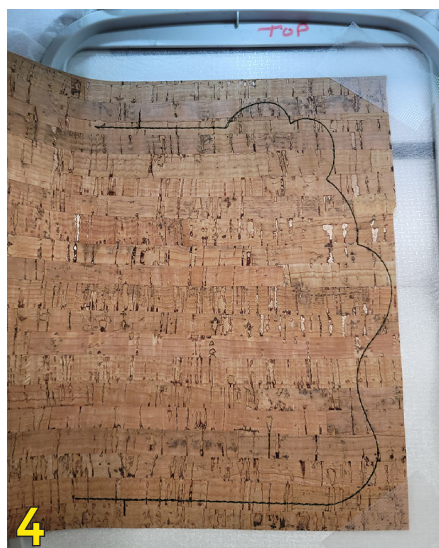 TOP
4